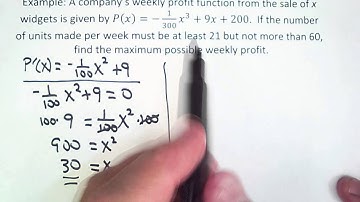 Example: A company's weekly profit function from the sale of x
widgets is given by P(x) = −1/300 x³ + 9x + 200. If the number
of units made per week must be at least 21 but not more than 60,
find the maximum possible weekly profit.
P'(x) = -1/100 x² + 9
-1/100 x² + 9 = 0
100·9 = 1/100 x² · 100
900 = x²
30 = x